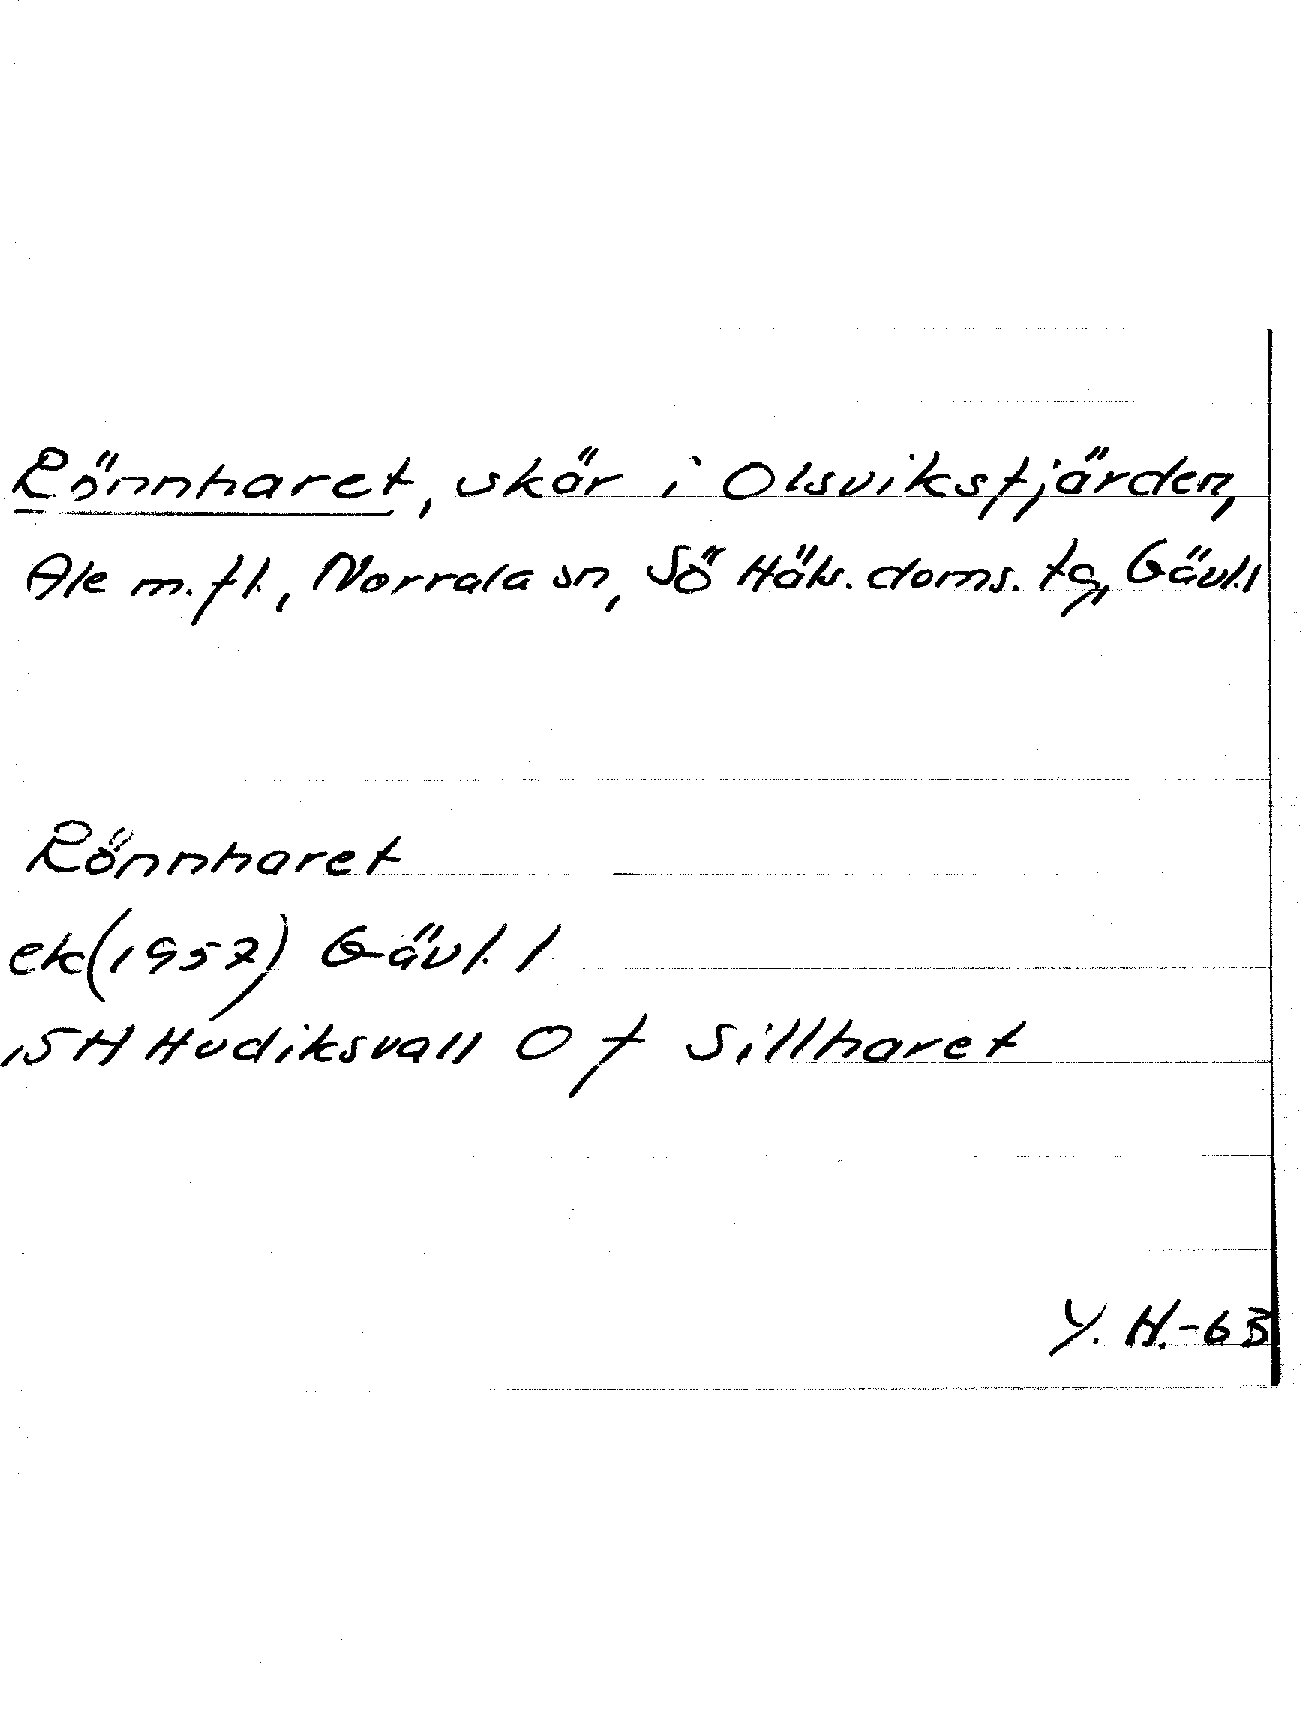 Rönnharet, skär i Olsviksfjärden,
Ale m.fl., Norrala sn, Sö Häls. doms. tg, Gävl.l
Rönnharet
ek(1957) Gävl. l
15H Hudiksvall O f Sillharet
Y. H.-63